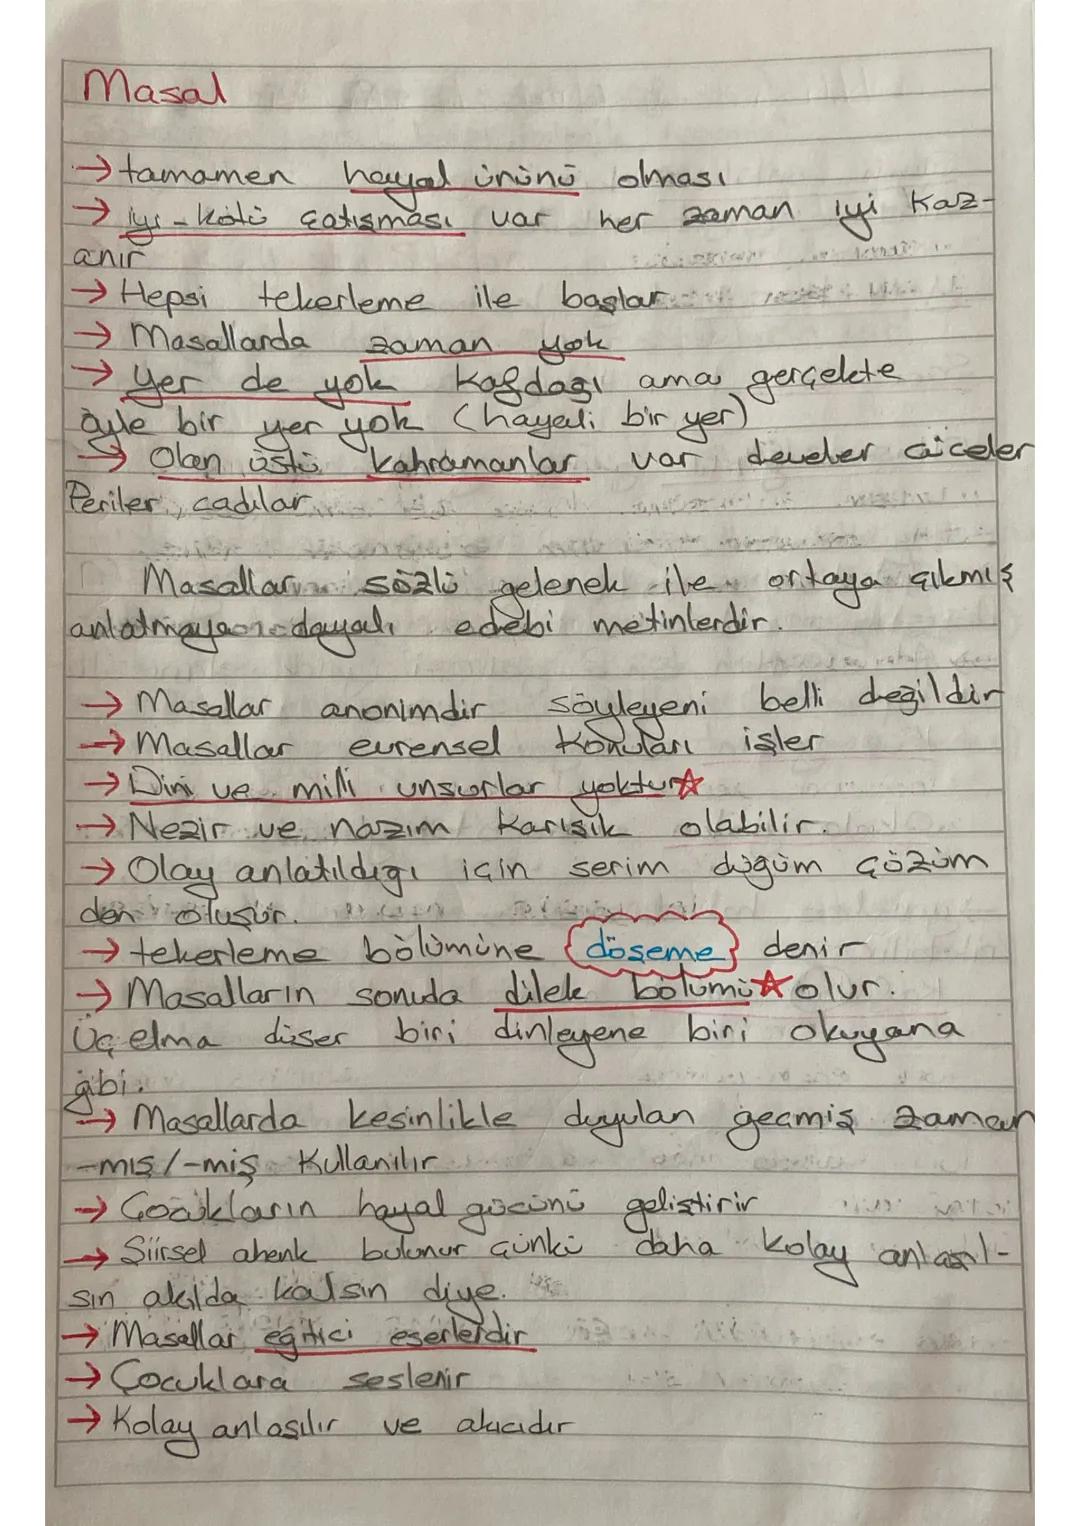 Masal
→ tamamen hayal ürünü olması
→ iyi - kötü çatışması var her zaman iyi kaz-
anır
→ Hepsi tekerleme ile başlar
→ Masallarda zaman yok
→ Yer de yok Kafdağı ama gerçekte
öyle bir yer yok (hayali bir yer)
→ Olan üstü kahramanlar var develer cüceler
Periler, cadılar
Masallar sözlü gelenek ile ortaya çıkmış
anlatmaya dayalı edebi metinlerdir.
→ Masallar anonimdir söyleyeni belli değildir
→ Masallar evrensel Konuları işler
→ Dini ve milli unsurlar yoktur☆
→ Nezir ve nazım Karışık olabilir.
→ Olay anlatıldığı için serim düğüm çözüm
den oluşur.
→ tekerleme bölümüne döşeme denir
→ Masalların sonuda dilek bölümü☆ olur.
Üç elma düser biri dinleyene biri okuyana
gibi.
→ Masallarda kesinlikle duyulan geçmiş zaman
-mış/-miş Kullanılır
→ Çocukların hayal gücünü geliştirir
→ Şiirsel ahenk bulunur çünkü daha kolay anlaşıl-
sın akılda kalsın diye.
→ Masallar eğitici eserlerdir
→ Çocuklara seslenir
→ Kolay anlaşılır ve akıcıdır